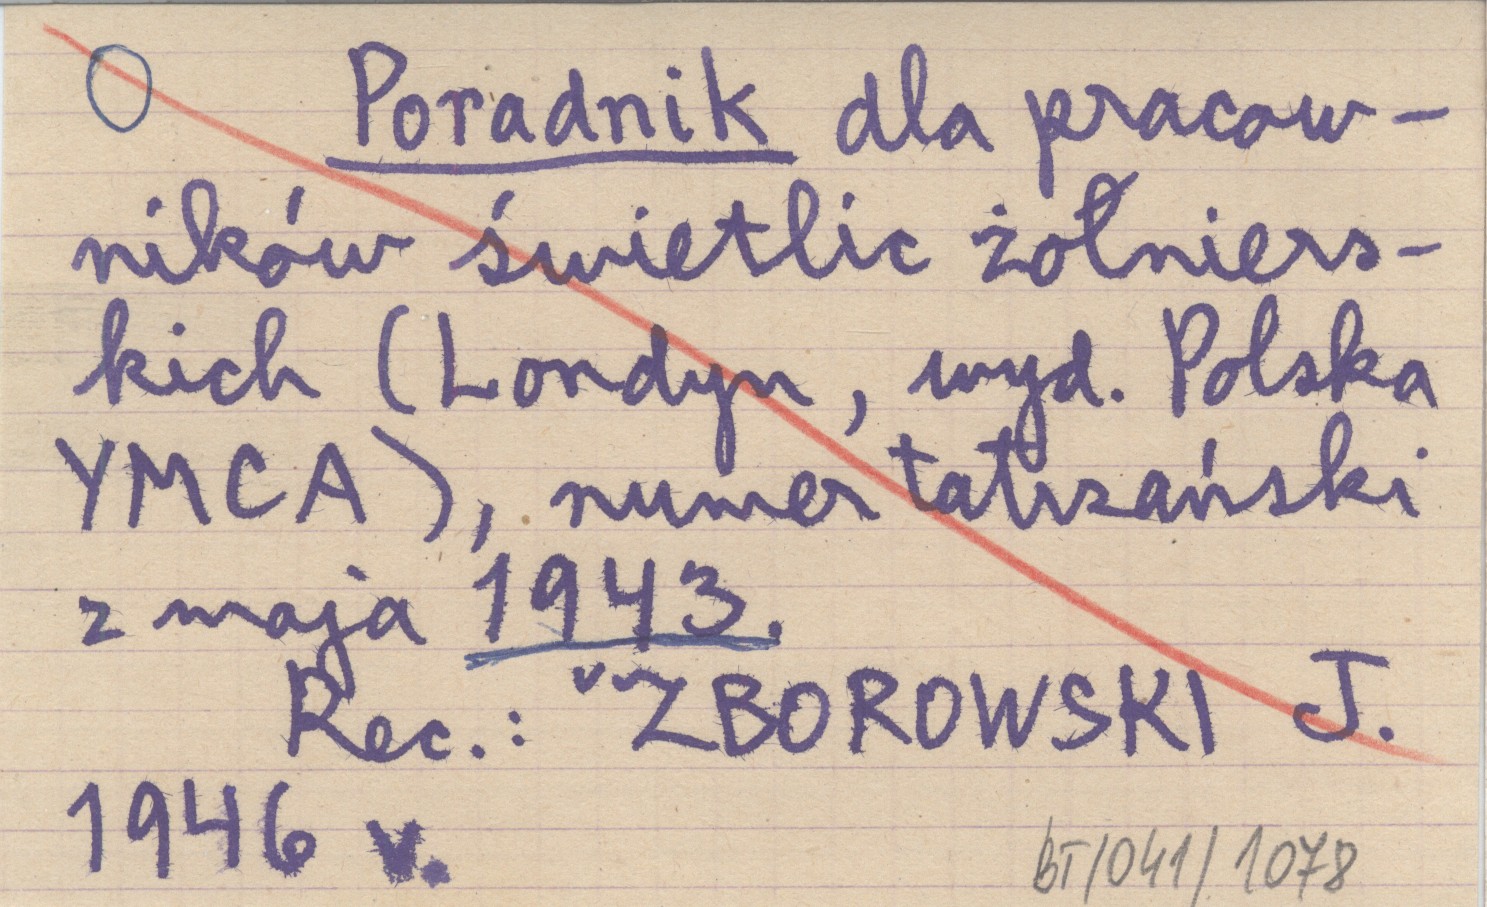 Poradnik dla pracow-
ników świetlic żołniers-
kich (Londyn, wyd. Polska
YMCA), numer tatrzański
z maja 1943.
Rec.: ZBOROWSKI J.
1946 v.
BT/041/1078